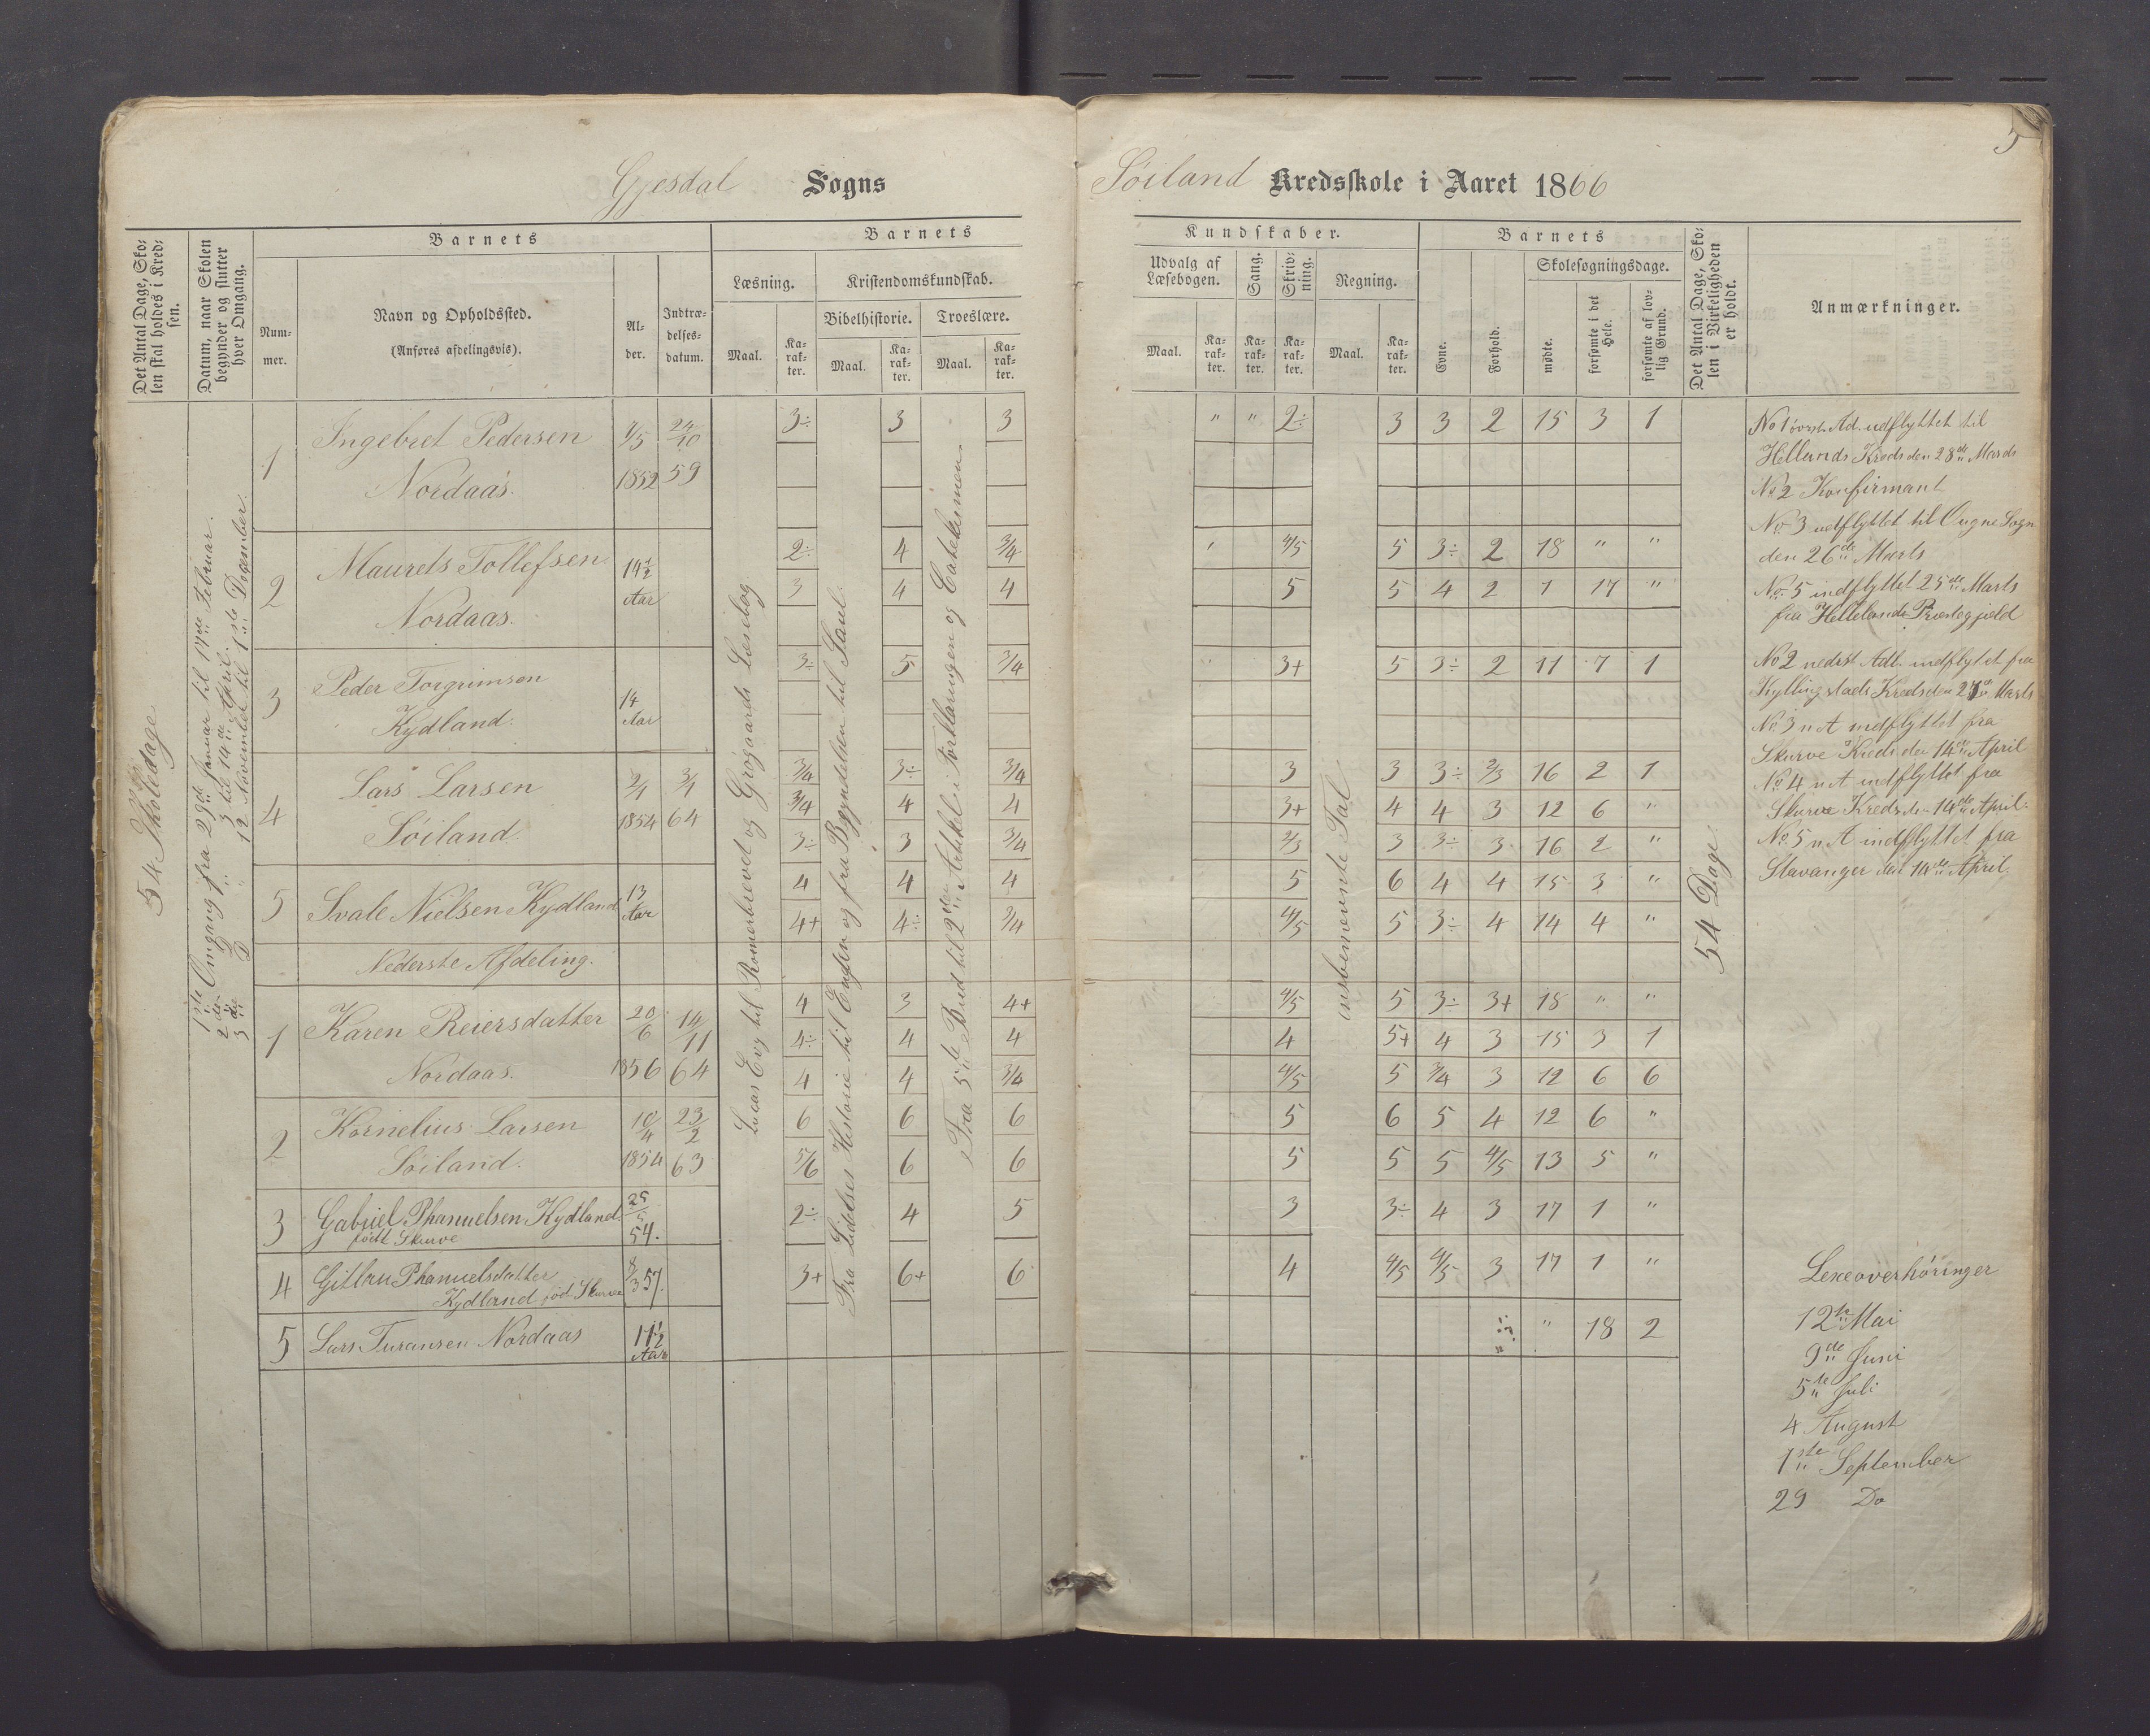 5
Gjesdal Sogns
Søiland Kredsskole i Aaret 1866
Det Antal Dage, Sko-
len skal holdes i Kred-
sen.
Datum, naar Skolen
begynder og slutter
hver Omgang.
Barnets
Num-
mer.
Navn og Opholdssted.
(Anføres afdelingsvis).
Al-
der.
Indtræ-
delses-
datum.
Barnets
Læsning.
Maal.
Ka-
rak-
ter.
Kristendomskundskab.
Bibelhistorie.
Maal.
Ka-
rak-
ter.
Troeslære.
Maal.
Ka-
rak-
ter.
Kundskaber.
Udvalg af
Læsebogen.
Maal.
Ka-
rak-
ter.
Sang.
Ka-
rak-
ter.
Skriv-
ning.
Ka-
rak-
ter.
Regning.
Maal.
Ka-
rak-
ter.
Barnets
Evne.
Forhold.
Skolesøgningsdage.
mødte.
forsømte i det
Hele.
forsømte af lov-
lig Grund.
Det Antal Dage, Sko-
len i Virkeligheden
er holdt.
Anmærkninger.
54 Skoledage
1ste Omgang fra 29de Januar til 17de Februar.
2den D 3 til 14de April.
3die D 12 November til 1ste December
Fra 5te Bud til 2den Artikel i Forklaringen og Catekismen
54 Dage
1 Ingebret Pedersen 24/10
Nordaas. 1852 59
3÷ 3 3 " " 2÷ 3 3 2 15 3 1
2 Maurets Tollefsen 14½
Nordaas. Aar
2÷ 4 3/4 4/5 5 3÷ 2 18 " "
3 4 4 5 5 4 2 1 17 "
3 Peder Torgrimson 14
Kydland. Aar
3÷ 5 3/4 " 3+ 5 3÷ 2 11 7 1
4 Lars Larsen
Søiland. 1854 64
3/4 3÷ 3/4 3 3 3÷ 2/3 16 2 1
3/4 4 4 3+ 4 4 3 12 6 "
3÷ 3 3/4 2/3 3 3÷ 3 16 2 "
5 Svale Nielsen Kydland 13
Aar
4 4 4 5 6 4 4 15 3 "
4+ 4÷ 3/4 4/5 5 3÷ 4 14 4 "
Nederste Afdeling.
1 Karen Reiersdatter 20/6 14/11
Nordaas. 1856 64
4 3 4+ 4/5 5 3÷ 3+ 18 " "
4÷ 4 4 4 5+ 4 3 15 3 1
4 4 3/4 4/5 5 3/4 3 12 6 6
2 Kornelius Larsen 10/4 23/2
Søiland. 1854 63
6 6 6 5 6 5 4 12 6 "
5/6 6 6 5 5 5 4/5 13 5 "
3 Gabriel Phanuelsen Kydland.
født Skurve 54.
2÷ 4 5 3 3÷ 4 3 17 1 "
4 Phanuelsdatter 8/3 57.
Kydland født Skurve
3+ 6+ 6 4 4/5 4/5 3 17 1 "
5 Lars Nordaas 11½
Aar
" 18 2
No 1 øverst Ad. udflyttet til
Hellunds Kreds den 28de Marts
No 2 Konfirmant
No 3 udflyttet til Ougne Sogn
den 26de Marts
No 5 indflyttet 25de Marts
fra Hellelands Præstegjeld
No 2 nederst Adl. indflyttet fra
Kyllingstads Kreds den Marts
No 3 n A indflyttet fra
Skurve Kreds den 14de April
No 4 n A indflyttet fra
Skurve Kreds den 14de April.
No 5 n A indflyttet fra
Stavanger den 14de April.
Lexeoverhøringer
12te Mai
9de Juni
5te Juli
4 August
1ste September
29 Do